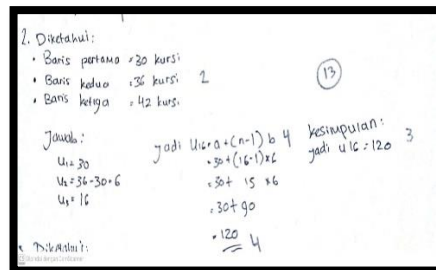 2. Diketahui:
• Baris pertama = 30 kursi
• Baris kedua = 36 kursi 2
• Baris ketiga = 42 kursi
13
Jawab:
U1 = 30
U2 = 36-30=6
U3 = 16
jadi U16= a + (n-1) b 4
= 30 + (16-1) x 6
= 30 + 15 x 6
= 30 + 90
= 120 4
kesimpulan:
jadi u16 = 120 3
Diketahui: